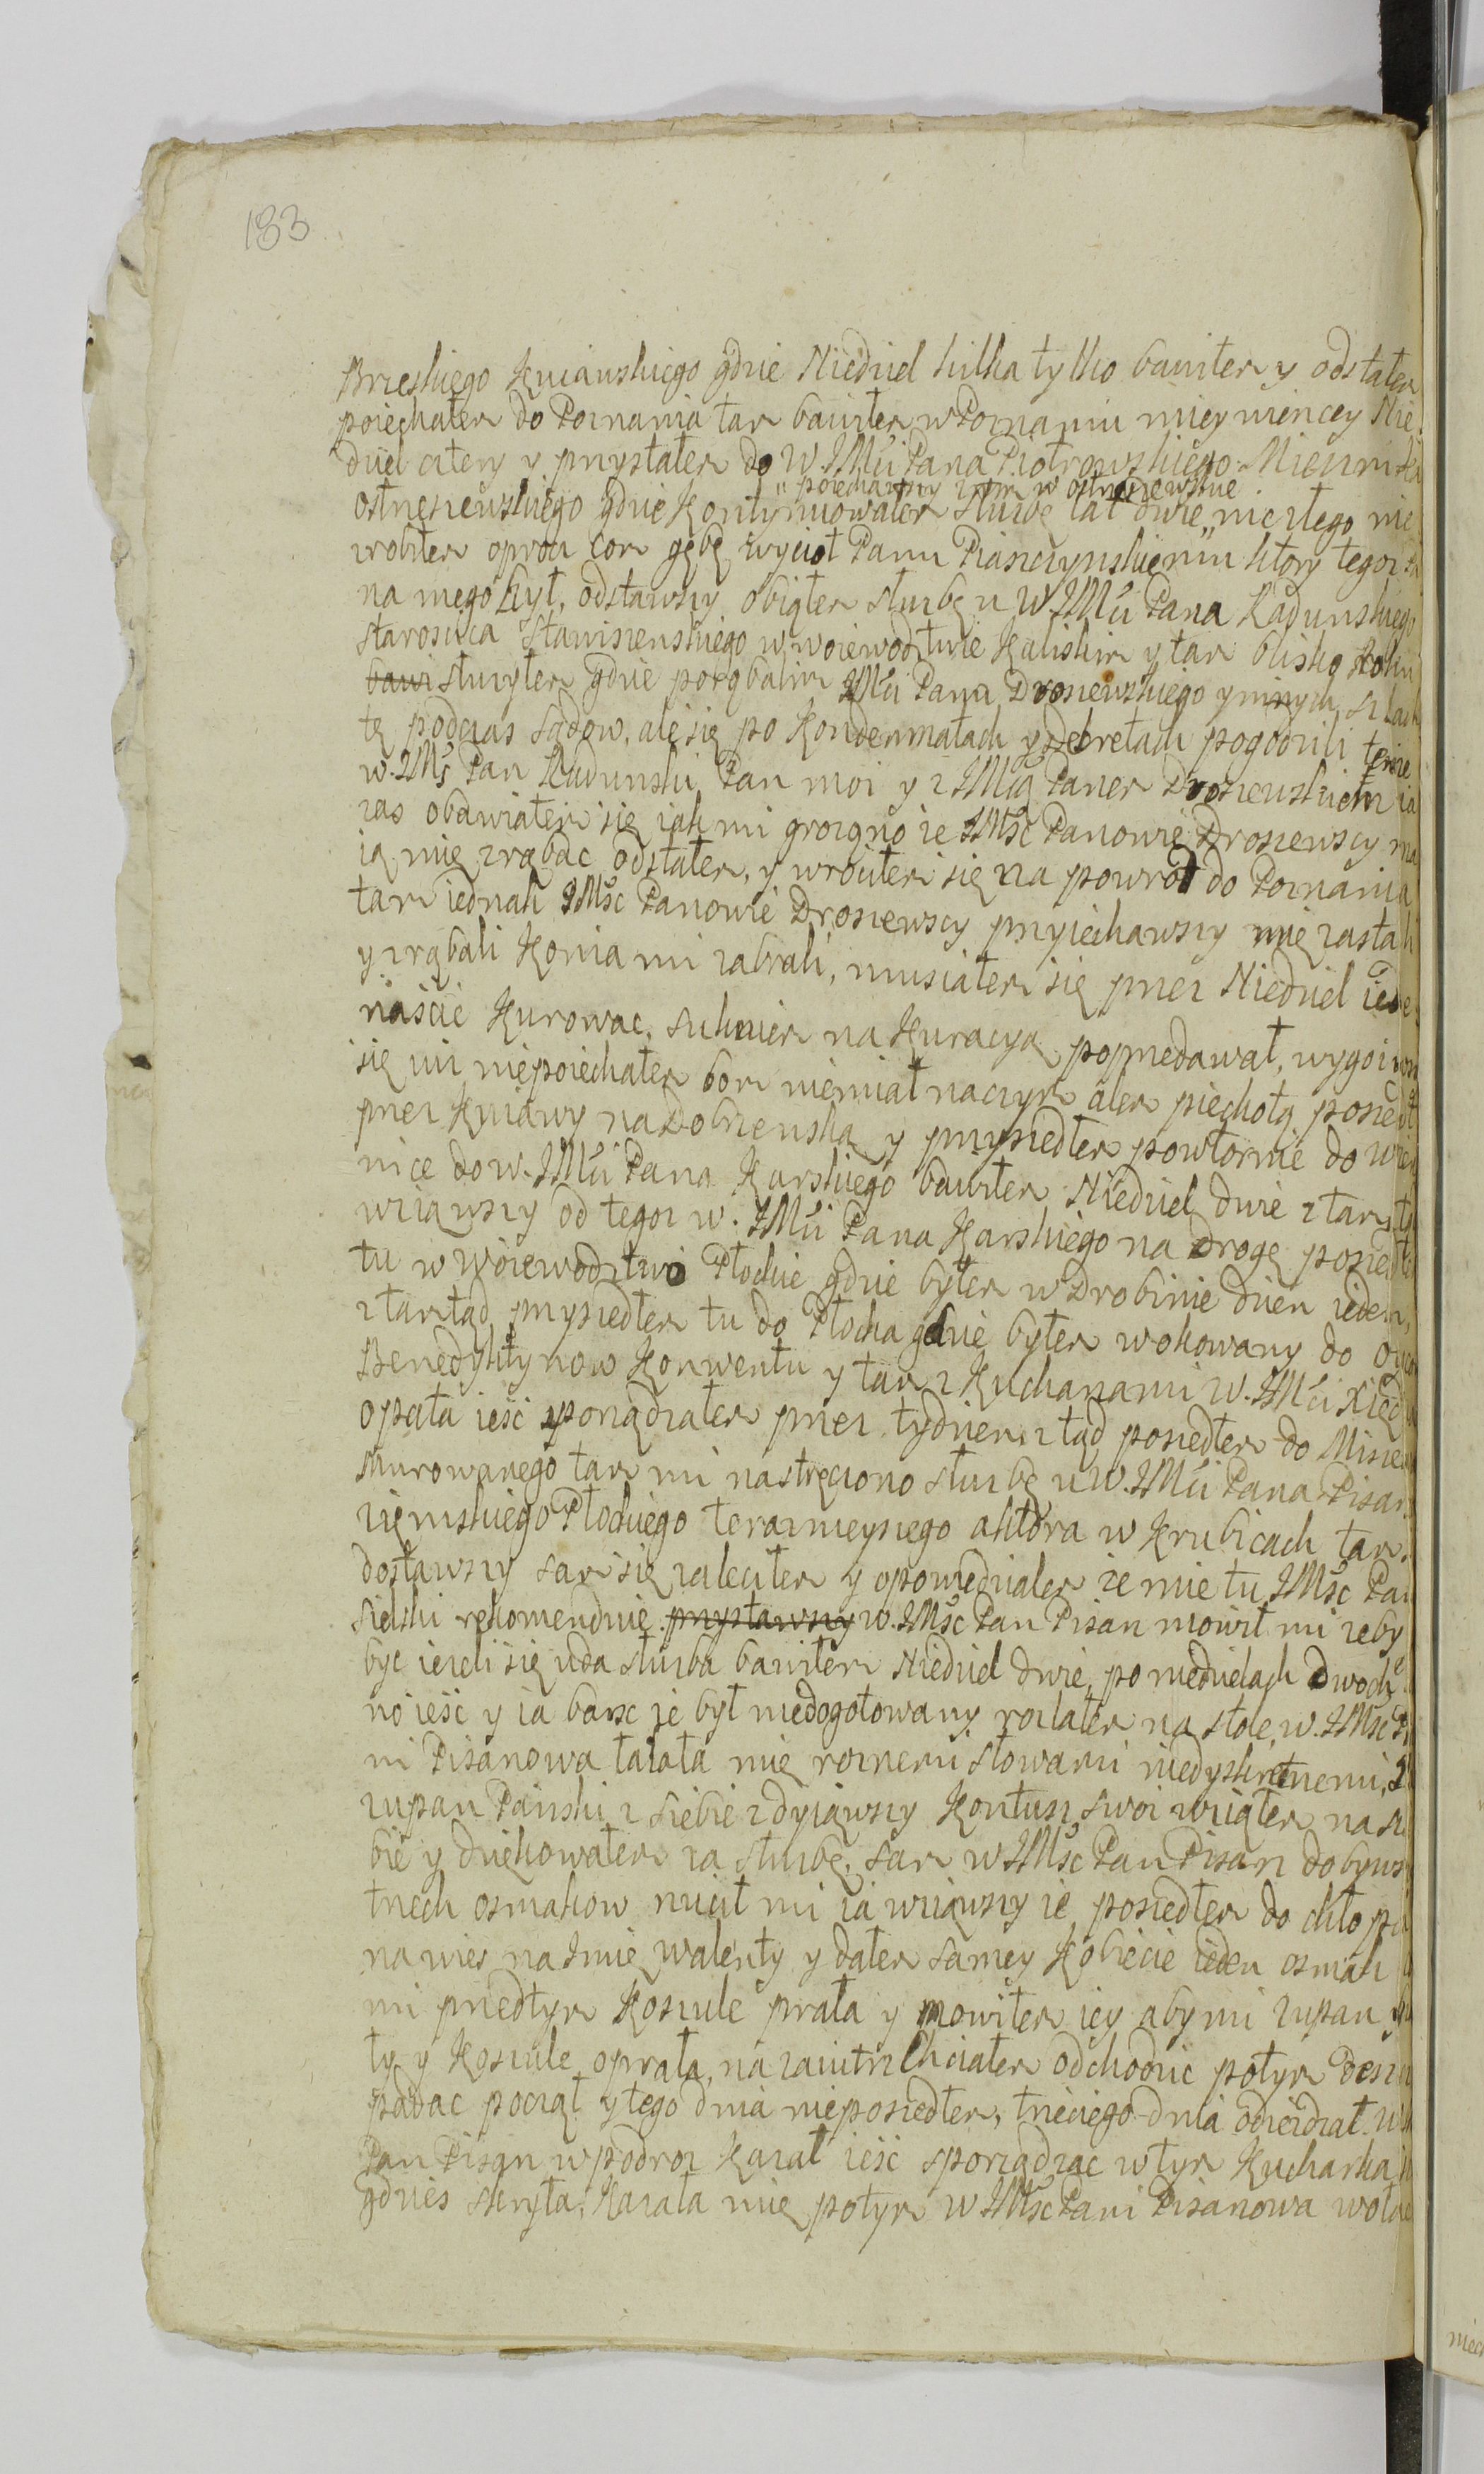 183
Brzeskiego Kuiawskiego gdzie Niedziel kilka tylko bawiłem y odstałem
poiechałem do Poznania tam bawiłem w Poznaniu mniey wiencey Nie
dziel cztery y przystałem do W. JMći Pana Piotrowskiego Mieczni
" poiechawszy z nim w ostrzeszewskie
ostrzeszewskiego gdzie Kontynuowałem służbę lat dwie " nic złego nie
zrobiłem oprocz com gębę wyciął Panu Pianczynskiemu ktory tegoz
na mego był, odstawszy obiąłem służbę u W JMći Pana Radunskiego
starosica Stawiszenskiego w woiewodztwie Kaliskim y tam blisko Roku
bawi służyłem gdzie porąbalim JMći Pana Droszewskiego y innych szlach
tę podczas sądow, ale się po Kondemnatach y dekretach pogodzili
w. JMść Pan Radunski Pan moi y z JMćią Panem Droszewskiem ia
zas obawiałem się iak mi grozono ze JMść Panowie Droszewscy ma
ią mię zrąbac odstałem, y wrociłem się na powrot do Poznania
tam iednak JMść Panowie Droszewscy przyiechawszy mię zastali
y zrąbali Konia mi zabrali, musiałem się przez Niedziel iede
naście Kurowac, sukniem na Kuracyą poprzedawał, wygoiwsz
się iuz niepoiechałem bom niemiał na czym alem piechotą poszedł
przez Kuiawy na Dobrzenską y przyszedłem powtornie do
nice do w. JMći Pana Karskiego bawiłem Niedziel dwie z tam
wziąwszy od tegoz w. JMći Pana Karskiego na drogę poszedłem
tu w Woiewodztwo Płockie gdzie byłem w Drobinie dzien ieden,
z tamtąd przyszedłem tu do Płocka gdzie byłem wokowany do oyco
Benedyktynow Konwentu y tam z Kucharzami W. JMći Xiędza
opata ieść sporządzałem przez tydzien z tąd poszedłem do Miszew
Murowanego tam mi nastręczono służbę u W. JMći Pana Pisarza
ziemskiego Płockiego teraznieyszego aktora w Krubicach tam.
dostawszy sam się zaleciłem y opowiedziałem ze mie tu JMść Pan
sielski rekomenduie. przystawszy w. JMśc Pan Pisarz mowił mi zeby
byc iezeli się uda służba bawiłem Niedziel dwie, po niedzielach dwoch
no ieść y ia barsc ze był niedogotowany rozlałem na stole, w. JMść Pa
ni Pisarzowa łaiała mię roznemi słowami niedyskretnemi,
zupan Pański z siebie zdyiąwszy Kontusz swoi wziąłem na sie
bie y dziękowałem za służbę. Sam w JMśc Pan Pisarz dobywsz
trzech osmakow rzucił mi ia wziąwszy ie poszedłem do chłopa
na wies na Imię Walenty y dałem samey Kobiecie ieden osmak
mi przedtym Koszule prała y mowiłem iey aby mi zupan
ty y Koszule oprała, na zaiutrz Chciałem odchodzic potym deszcz
padac począł y tego dnia nieposzedłem, trzeciego dnia odiezdzał W
Pan Pisarz w podroz Kazał ieść sporządzac w tym Kucharka
gdzies skryła, Kazała mię potym W JMśc Pani Pisarzowa wołac